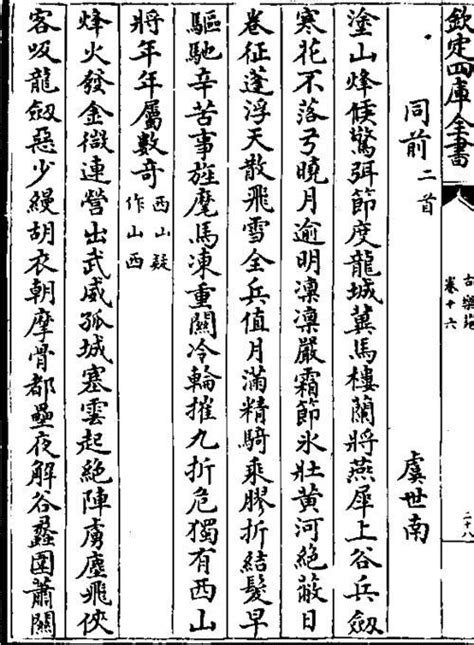 欽定四庫全書
古樂苑
卷十六
二十八
同前二首 虞世南
塗山烽候驚弭節度龍城冀馬樓蘭將燕犀上谷兵劒
寒花不落弓曉月逾明凜凜嚴霜節氷壯黃河絶蔽日
卷征蓬浮天散飛雪全兵值月滿精騎乘膠折結髮早
驅馳辛苦事旌麾馬凍重關冷輪摧九折危獨有西山
將年年屬數奇 西山疑作山西
烽火發金微連營出武威孤城塞雲起絶陣虜塵飛俠
客吸龍劒惡少縵胡衣朝摩骨都壘夜解谷蠡圍蕭關